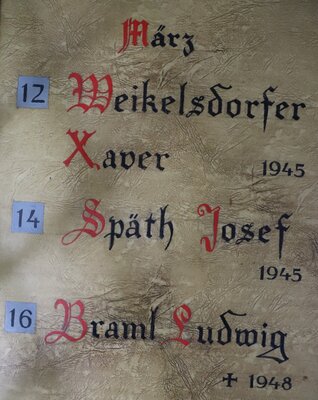 März
12 Weikelsdorfer
Xaver 1945
14 Späth Josef
1945
16 Braml Ludwig
✝ 1948